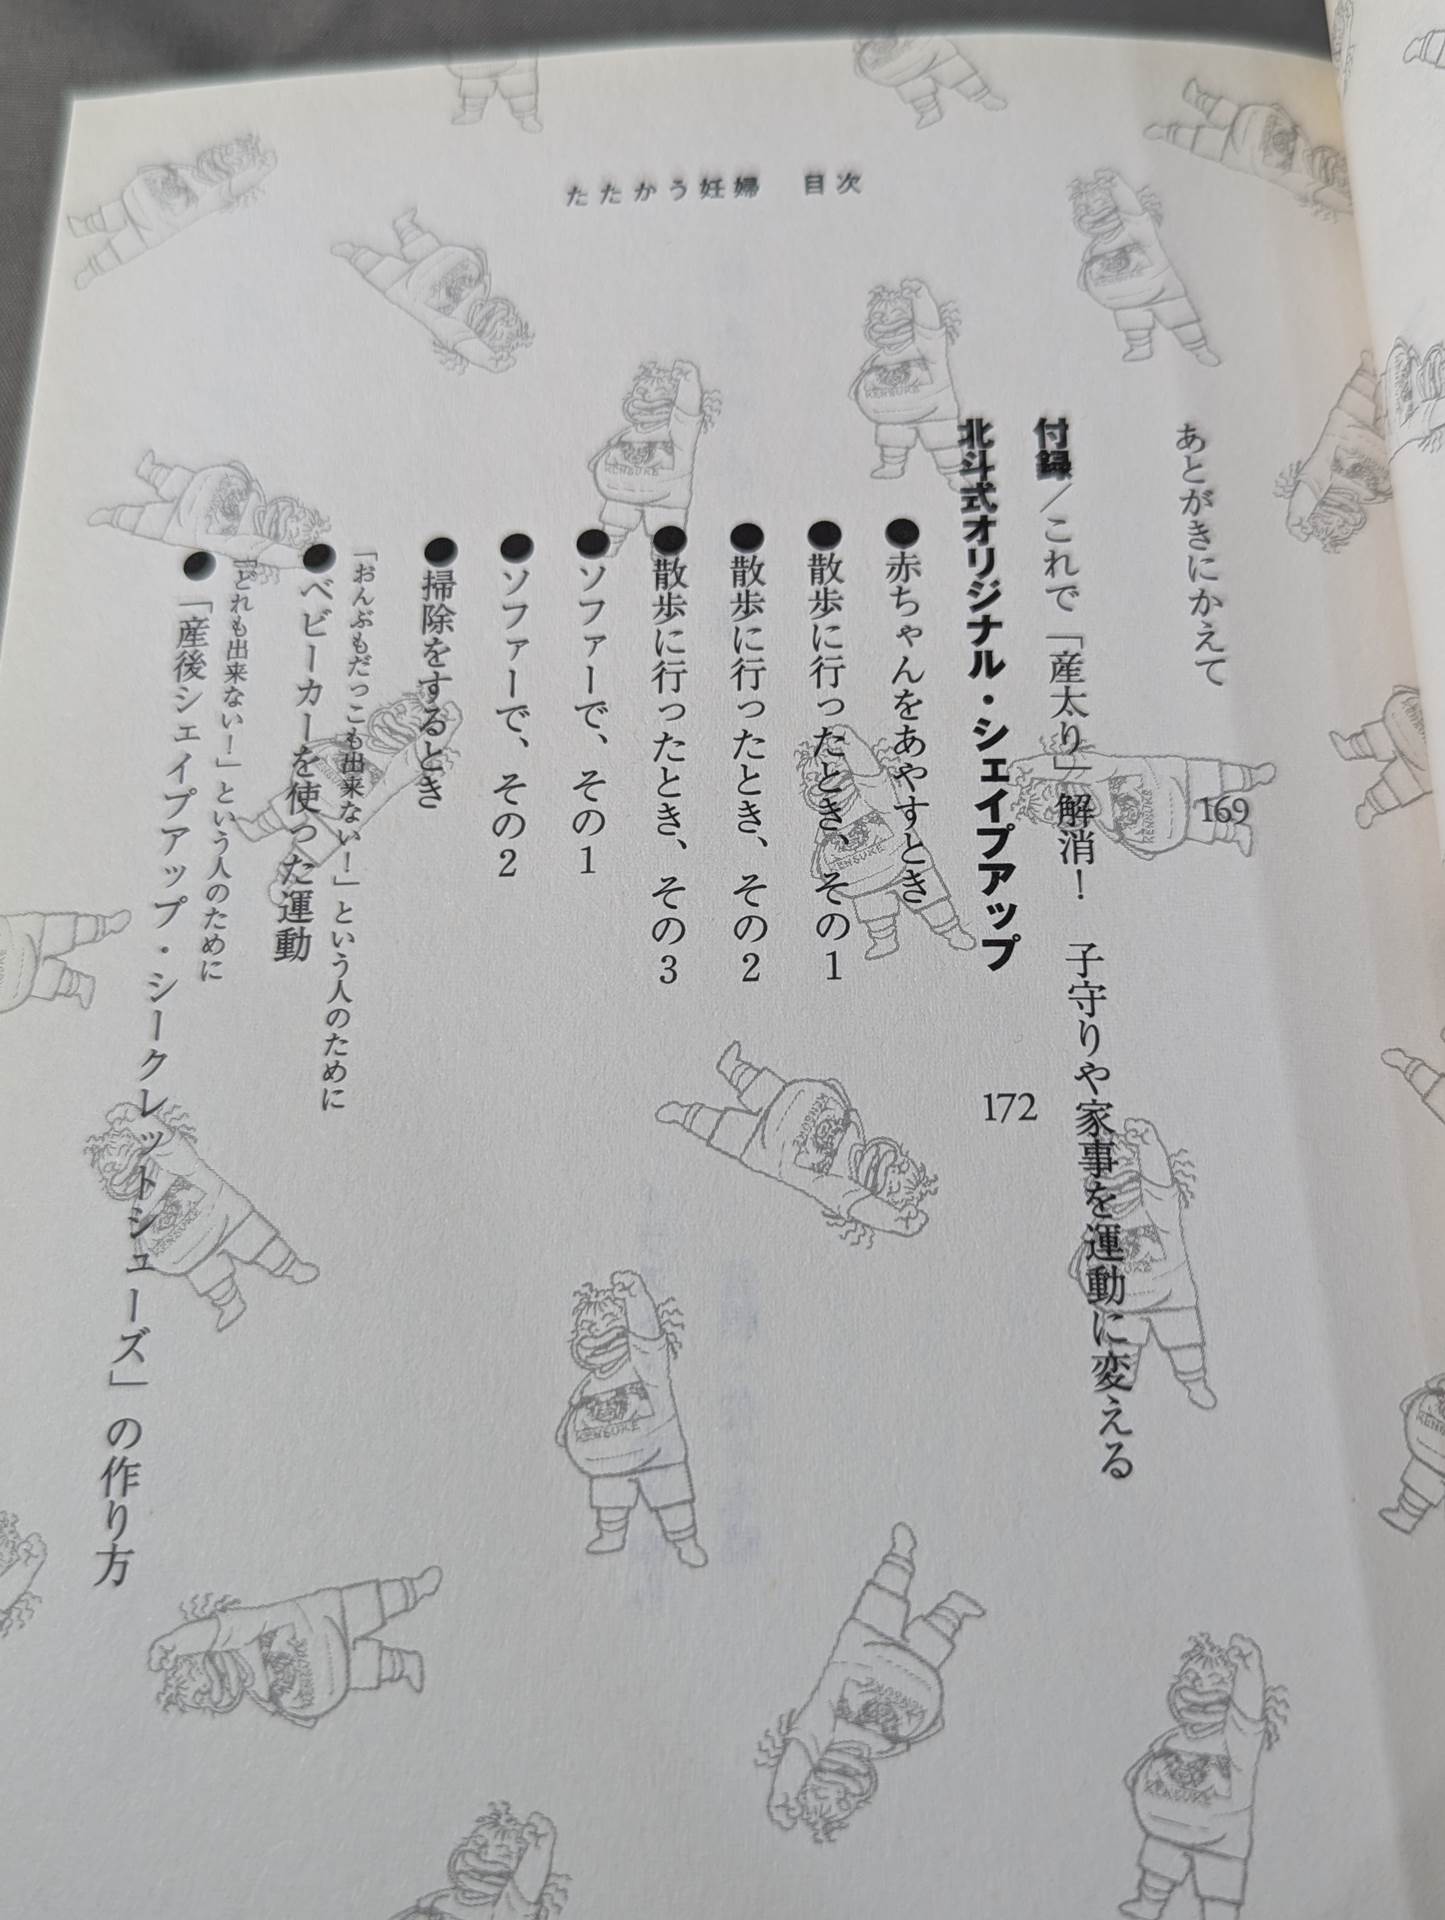 たたかう妊婦　目次
あとがきにかえて　169
付録／これで「産太り」解消！　子守りや家事を運動に変える
北斗式オリジナル・シェイプアップ　172
●赤ちゃんをあやすとき
●散歩に行ったとき、その1
●散歩に行ったとき、その2
●散歩に行ったとき、その3
●ソファーで、その1
●ソファーで、その2
●掃除をするとき
「おんぶもだっこも出来ない！」という人のために
●ベビーカーを使った運動
「どれも出来ない！」という人のために
●「産後シェイプアップ・シークレットシューズ」の作り方
KENSUKE